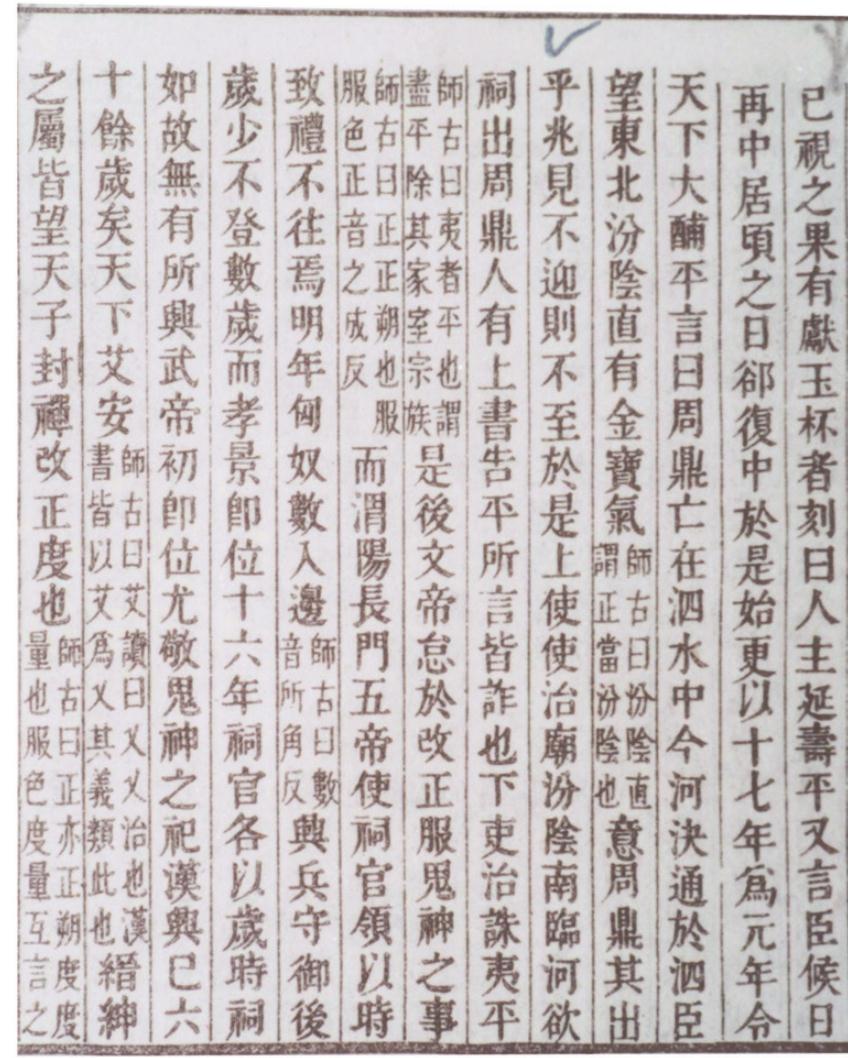 已視之果有獻玉杯者刻曰人主延壽平又言臣候日
再中居頃之日郤復中於是始更以十七年爲元年令
天下大酺平言曰周鼎亡在泗水中今河決通於泗臣
望東北汾陰直有金寶氣師古曰汾陰直謂正當汾陰也意周鼎其出
乎兆見不迎則不至於是上使使治廟汾陰南臨河欲
祠出周鼎人有上書告平所言皆詐也下吏治誅夷平
師古曰夷者平也謂盡平除其家室宗族是後文帝怠於改正服鬼神之事
師古曰正正朔也服服色正音之成反而渭陽長門五帝使祠官領以時
致禮不往焉明年匈奴數入邊師古曰數音所角反興兵守御後
歲少不登數歲而孝景卽位十六年祠官各以歲時祠
如故無有所興武帝初卽位尤敬鬼神之祀漢興已六
十餘歲矣天下艾安師古曰艾讀曰乂乂治也漢書皆以艾爲乂其義類此也縉紳
之屬皆望天子封禪改正度也師古曰正亦正朔度度量也服色度量互言之